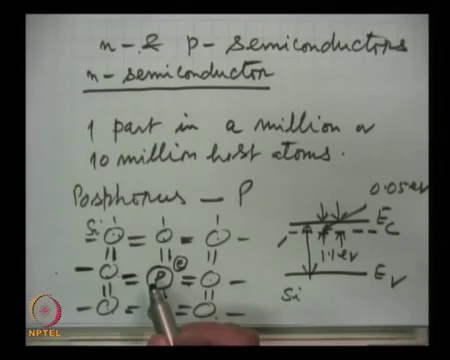 n- & p- semiconductors
n- semiconductor
1 part in a million or
10 million host atoms.
Posphorus - P
0.05 eV
Si
Ec
P
e
1.1 eV
Si
Ev
NPTEL